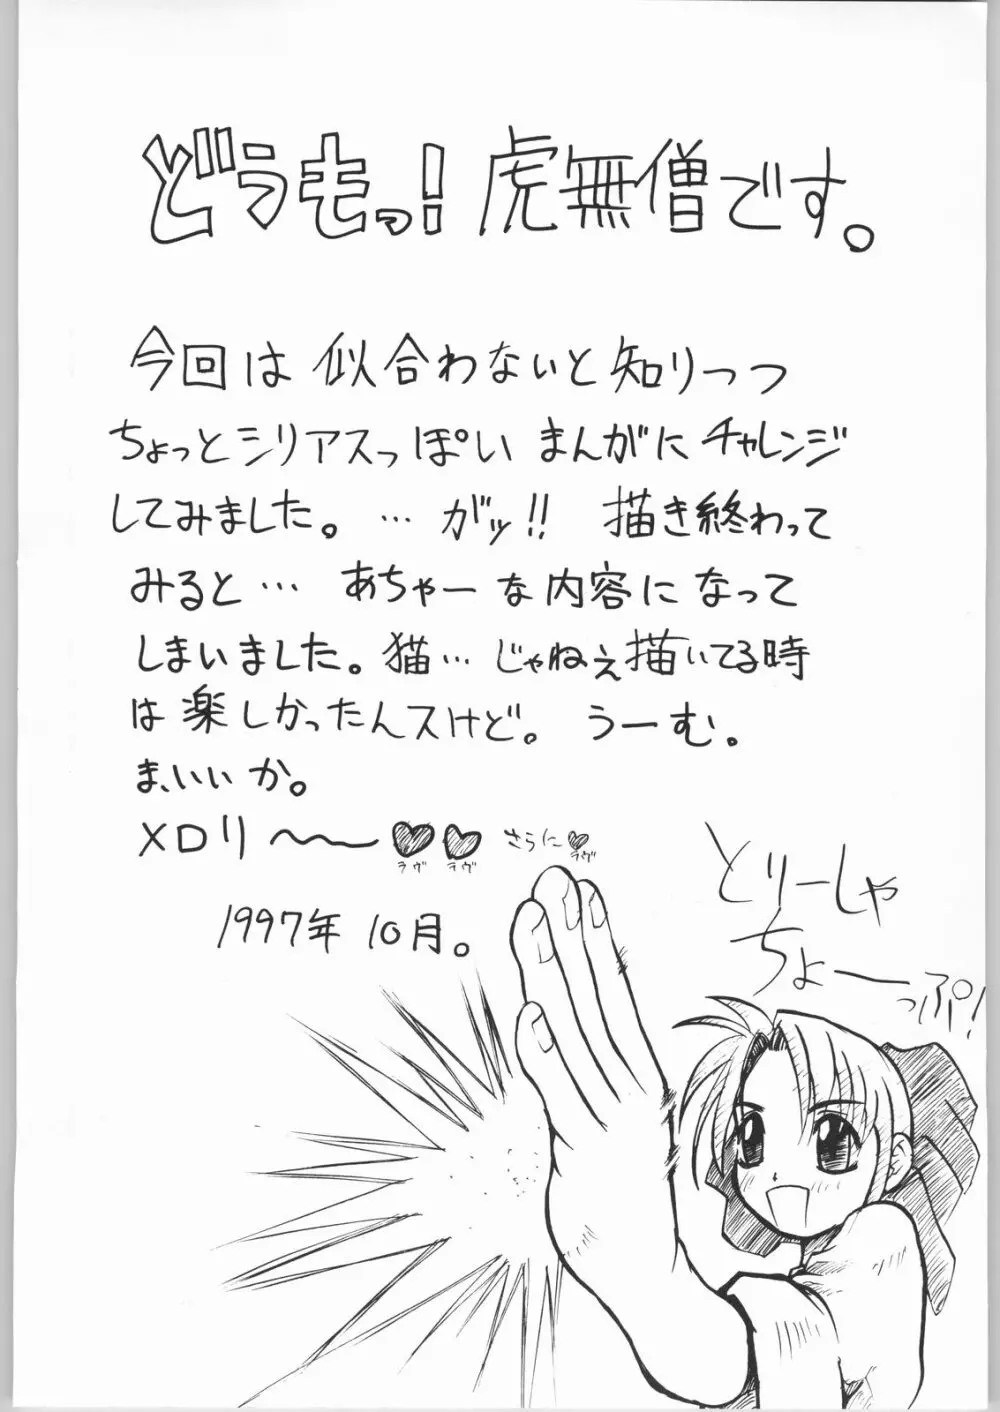 どうもっ！虎無僧です。
今回は似合わないと知りつつ
ちょっとシリアスっぽいまんがにチャレンジ
してみました。…がッ!! 描き終わって
みると…あちゃーな内容になって
しまいました。猫…じゃねぇ描いてる時
は楽しかったんスけど。うーむ。
ま、いいか。
メロリ〜〜♥♥さらに♥
ラヴ ラヴ ラヴ
1997年10月。
とりーしゃ
ちょーっぷ!